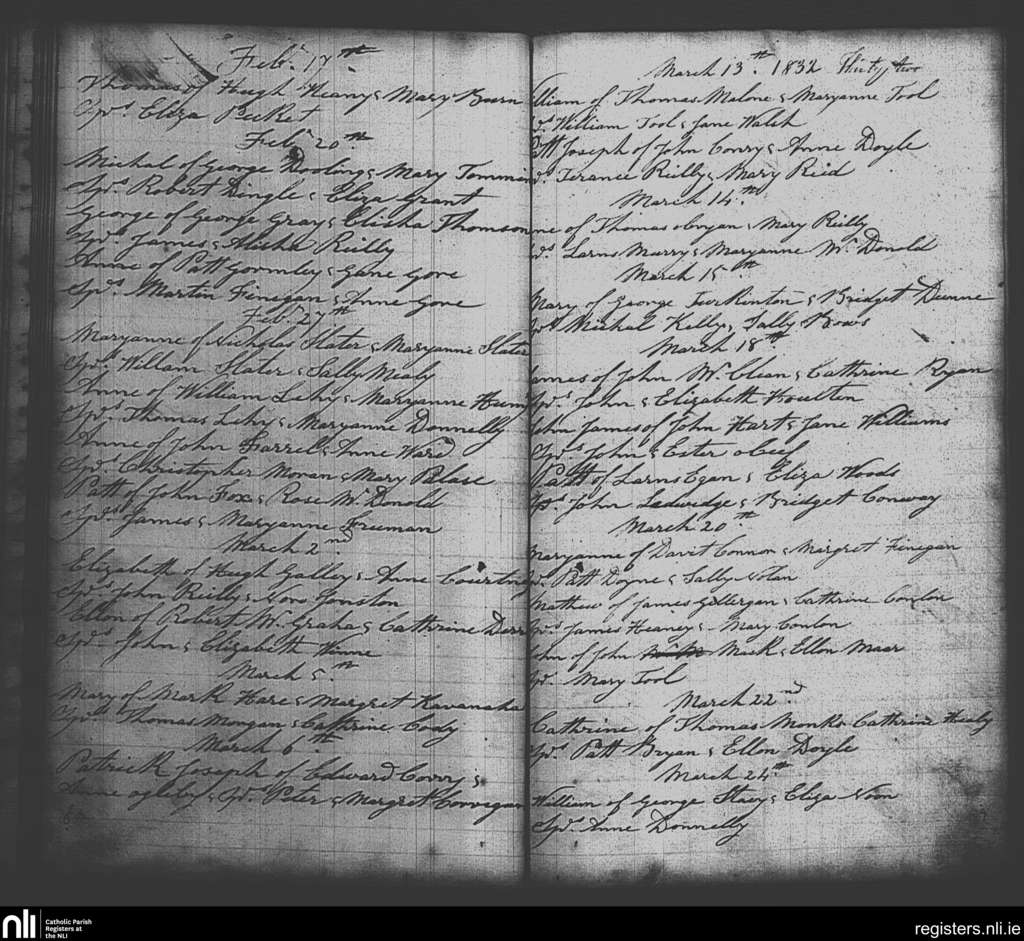 Feby. 17th.
Thomas of Hugh Heany & Mary Burn
Spr. Eliza Picket
Feby. 20th
Michal of George Dooling & Mary
Sprs. Robert Dingle & Eliza Grant
George of George Gray & Elisha Thomson
Sprs. James & Alisha Reilly
Anne of Patt Gormley & Jane Gore
Sprs. Martin Finegan & Anne Gore
Feb. 27th
Maryanne of Nicholas Slater & Maryanne Slater
Sprs. William Slater & Sally Mealy
Anne of William Lehy & Maryanne
Sprs. Thomas Lehy & Maryanne Donnelly
Anne of John Farrel & Anne Ward
Sprs. Christopher Moran & Mary Palace
Patt of John Fox & Rose Mc. Donold
Sprs. James & Maryanne Freeman
March 2nd.
Elizabeth of Hugh Galley & Anne Courtney
Sprs. John Reilly & Jonston
Ellon of Robert Mc. Graha & Cathrine
Sprs. John & Elizabeth
March 5th.
Mary of Mark Hare & Margret Kavanaha
Sprs. Thomas Mongan & Cathrine Cody
March 6th
Patrick Joseph of Edward Corry &
Anne & Sprs. Peter & Margret Corregan
March 13th. 1832 Thirty two
lliam of Thomas Malone & Maryanne Tool
rs. William Tool & Jane Walsh
Patt Joseph of John Conry & Anne Doyle
Terance Reilly & Mary Reid
March 14th
ne of Thomas obryan & Mary Reilly
rs. Larns Murry & Maryanne Mc. Donold
March 15th
Mary of George & Bridget Dunne
Sprs. Michal Kelly & Sally
March 18th
James of John Mc. Clean & Cathrine Ryan
Sprs. John & Elizabeth Houlton
John James of John Hart & Jane Williams
Sprs. John & Ester
Patt of Larns Egan & Eliza Woods
Sprs. John Ledwidge & Bridget Conway
March 20th
Maryanne of Davit Connon & Margret Finegan
Sprs. Patt Doyne & Sally Nolan
Mathew of James Gillergan & Cathrine Conlon
Sprs. James Heaney & Mary Conlon
John of John Mack & Ellon Maar
Spr. Mary Tool
March 22nd
Cathrine of Thomas Monks Cathrine Healy
Sprs. Patt Bryan & Ellon Doyle
March 24th
William of George Stacy & Eliza Noon
Spr. Anne Donnelly
nli
Catholic Parish
Registers at
the NLI
registers.nli.ie